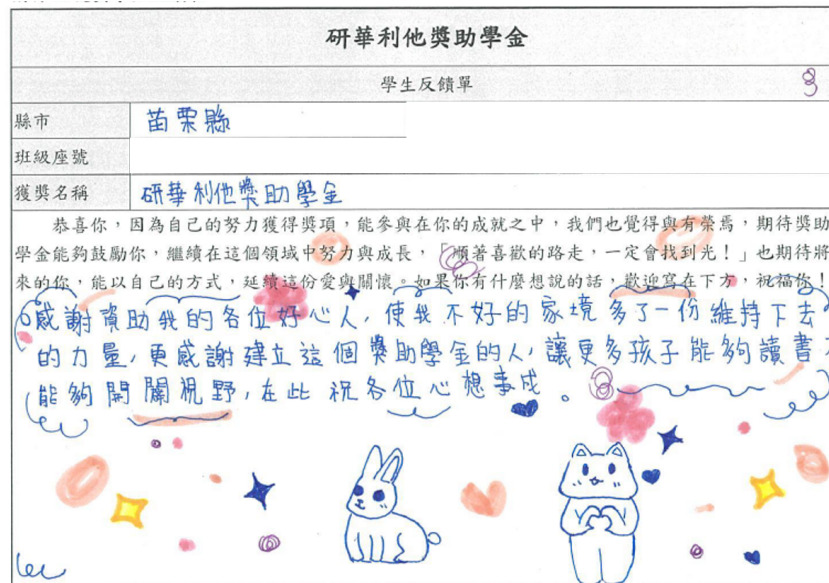 研華利他獎助學金
學生反饋單
縣市
苗栗縣
班級座號
獲獎名稱
研華利他獎助學金
恭喜你，因為自己的努力獲得獎項，能參與在你的成就之中，我們也覺得與有榮焉，期待獎助
學金能夠鼓勵你，繼續在這個領域中努力與成長，「順著喜歡的路走，一定會找到光！」也期待將
來的你，能以自己的方式，延續這份愛與關懷。如果你有什麼想說的話，歡迎寫在下方，祝福你！
感謝資助我的各位好心人，使我不好的家境多了一份維持下去
的力量，更感謝建立這個獎助學金的人，讓更多孩子能夠讀書
能夠開闊視野，在此祝各位心想事成。